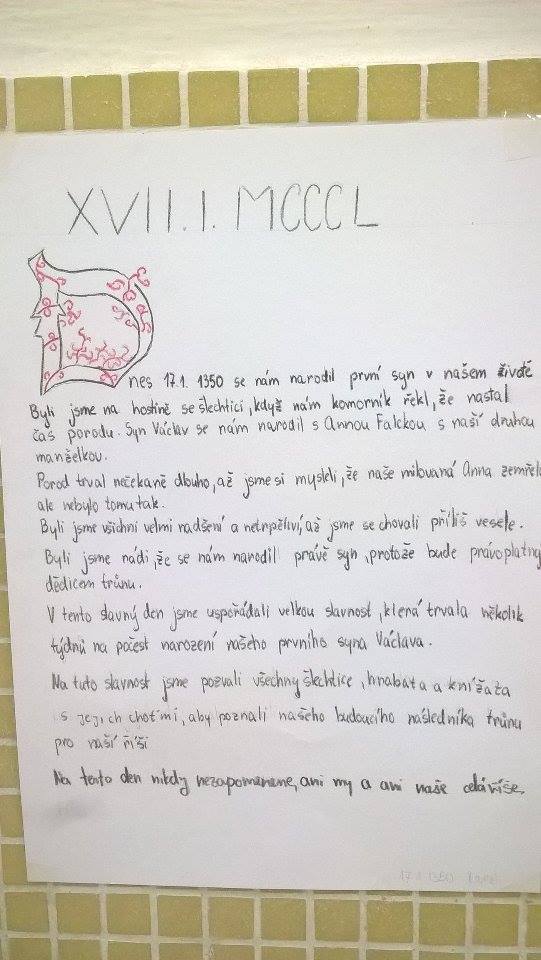 XVII.I.MCCCL
Dnes 17.1. 1350 se nám narodil první syn v našem životě
Byli jsme na hostině se šlechtici, když nám komorník řekl, že nastal
čas porodu. Syn Václav se nám narodil s Annou Falckou s naší druhou
manželkou.
Porod trval nečekaně dlouho, až jsme si mysleli, že naše milovaná Anna zemřela
ale nebylo tomu tak.
Byli jsme všichni velmi nadšení a netrpěliví, až jsme se chovali příliš vesele.
Byli jsme rádi, že se nám narodil právě syn, protože bude právoplatný
dědicem trůnu.
V tento slavný den jsme uspořádali velkou slavnost, která trvala několik
týdnů na počest narození našeho prvního syna Václava.
Na tuto slavnost jsme pozvali všechny šlechtice, hrabata a knížata
s jejich choťmi, aby poznali našeho budoucího následníka trůnu
pro naší říši
Na tento den nikdy nezapomeneme, ani my a ani naše celá říše.
17.1.1350